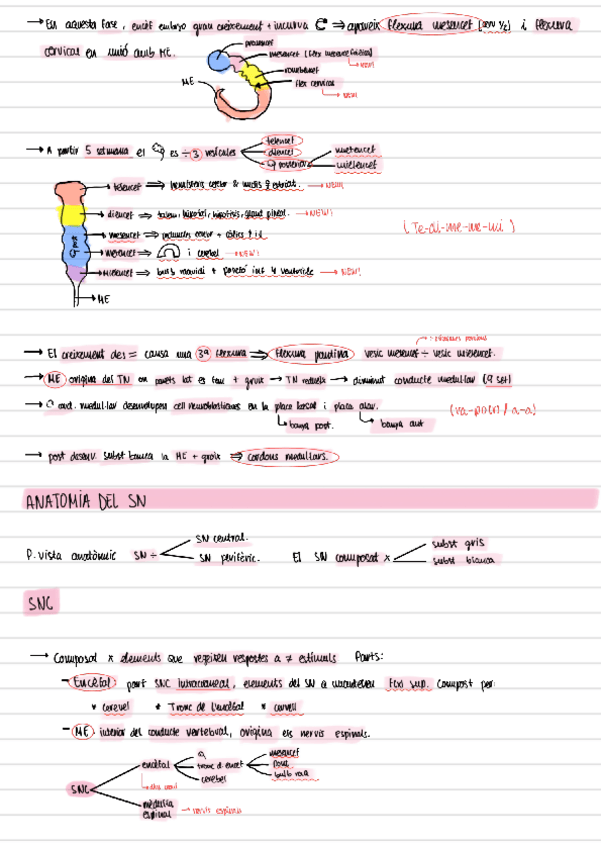 → En aquesta fase, encèf embro grau creixement + incurva C ⇒ apareix flexura mesencef (conv ½) i flexura
cervical en unió amb ME.
prosencef
mesencef (flex mesencefàlica)
→ NEW!
rombencef
flex cervical
→ NEW!
ME
→ A partir 5 setmana el es ÷ 3 vesícules
telencef
diencef
posterior
metencef
mielencef
telencef ⇒ hemisferis cereb & nuclis estriat. → NEW!
diencef ⇒ talem, hipotàl, hipòfisis, gland pineal. → NEW!
mesencef ⇒ peduncles cereb + còlics
metencef ⇒ i cerebel → NEW!
mielencef ⇒ bulb raquidi + paret inf 4 ventricle → NEW!
ME
(Te-di-me-me-mi)
→ El creixement des = causa una 3ª flexura ⇒ flexura pontina vesic metencef ÷ vesic mielencef.
→ ME origina del TN on parets lat es fan + gruix → TN redueix → diminut conducte medul·lar (9 set)
cond. medul·lar desenvolupen cell neuroblàstiques en la placa basal i placa alar.
banya post.
banya ant
→ post desenv. subst blanca la ME + gruix ⇒ cordons medul·lars.
ANATOMÍA DEL SN
P. vista anatòmic SN ÷
SN central.
SN perifèric.
El SN composat x
subst gris
subst blanca
SNC
→ Composat x elements que regeixen respostes a ≠ estímuls Parts:
- Encèfal part SNC intracraneal, elements del SN a Fxs sup. Compost per:
* Cerebel * Tronc de l'encèfal * cervell
- ME interior del conducte vertebral, origina els nervis espinals.
SNC
encèfal
tronc d'encef
cerebel
mesencef
Pont
bulb raq
medul·la
espinal
→ nervis espinals